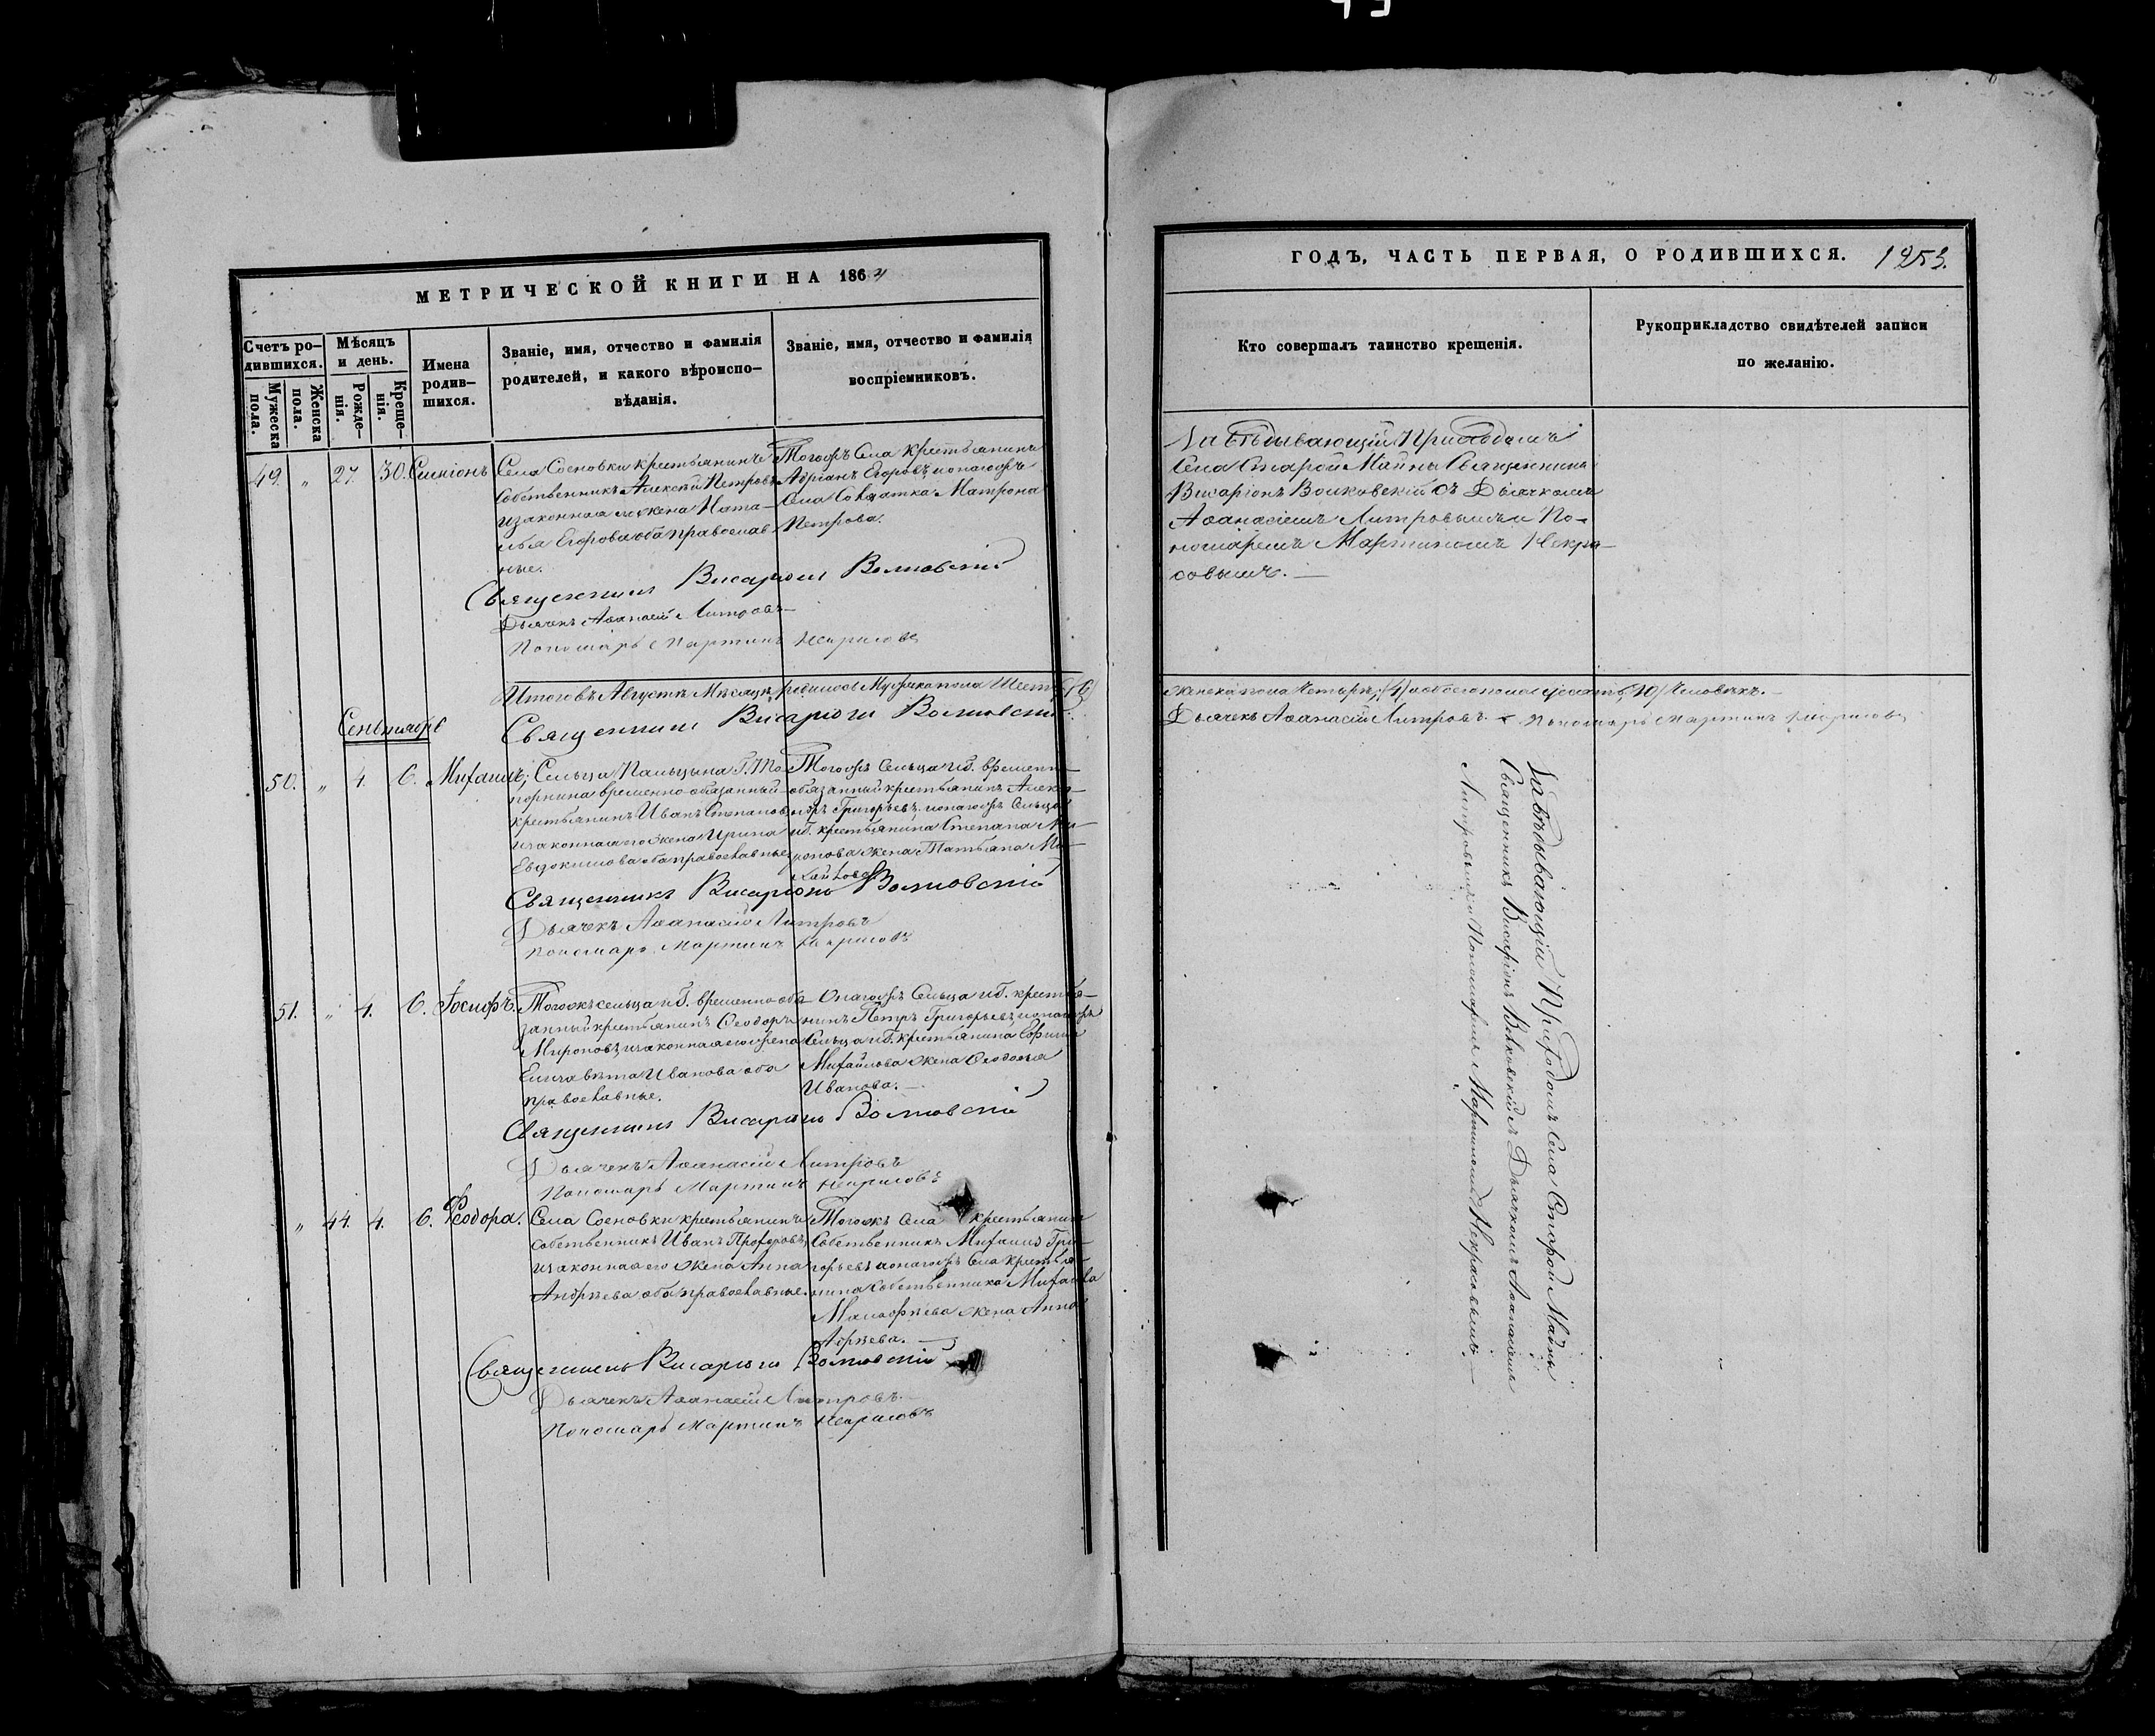 МЕТРИЧЕСКОЙ КНИГИ НА 186
Счетъ ро-
дившихся.
Мужеска
пола.
Женска
пола.
Мѣсяцъ
и день.
Рожде-
нія.
Креще-
нія.
Имена
родив-
шихся.
Званіе, имя, отчество и фамилія
родителей, и какого вѣроиспо-
вѣданія.
Званіе, имя, отчество и фамилія
воспріемниковъ.
49. „ 27. 30. Симіонъ
Села Сосновки крестьянинъ
собственникъ Алексѣй Петровъ
и законная жена Ната-
лья Егорова оба православ-
ные.
Тогожъ Села крестьянинъ
Адріанъ Егоровъ и тогожъ
Села Матрона
Петрова.
Священникъ Висаріонъ Волковскій
Дьячекъ Аѳанасій Литровъ
Пономарь Мартинъ Некрасовъ
Итого въ Августѣ Мѣсяцѣ родилось Мужеска пола Шесть (6)
Священникъ Висаріонъ Волковскій
Сентябрь
50. „ 4. 6. Михаилъ;
Сельца Пальцына Г.
временно-обязанный
крестьянинъ Иванъ Степановъ
и законная его жена Ирина
Евдокимова оба православные
Тогожъ Сельца временно-
обязанный крестьянинъ Алекс-
Григорьевъ и тогожъ Сельца
крестьянина Степана Ми-
ронова жена Татьяна Ми-
хайлова
Священникъ Висаріонъ Волковскій
Дьячекъ Аѳанасій Литровъ
Пономарь Мартинъ Некрасовъ
51. „ 4. 6. Іосифъ.
Тогожъ сельца временно обя-
занный крестьянинъ Ѳеодоръ
Мироновъ и законная его жена
Елизавета Иванова оба
православные.
Сельца крестья-
нинъ Петръ Григорьевъ и тогожъ
Сельца крестьянина
Михайлова жена Ѳеодосья
Иванова.
Священникъ Висаріонъ Волковскій
Дьячекъ Аѳанасій Литровъ
Пономарь Мартинъ Некрасовъ
„ 44. 4. 6. Ѳеодора.
Села Сосновки крестьянинъ
собственникъ Иванъ Прохоровъ,
и законная его жена Анна
Андреева оба православные.
Тогожъ Села крестьянинъ
Собственникъ Михаилъ Гри-
горьевъ и тогожъ Села крестья-
нина Собственника Михаила
жена Анна
Священникъ Висаріонъ Волковскій
Дьячекъ Аѳанасій Литровъ
Пономарь Мартинъ Некрасовъ
ГОДЪ, ЧАСТЬ ПЕРВАЯ, О РОДИВШИХСЯ. 1253.
Кто совершалъ таинство крещенія.
Рукоприкладство свидѣтелей записи
по желанію.
Завѣдывающій Приходомъ
Села Старой Майны Священникъ
Висаріонъ Волковскій съ Дьячкомъ
Аѳанасіемъ Литровымъ и По-
номаремъ Мартиномъ Некра-
совымъ.
Женска пола Четыре; (4) а обоего пола десять (10) Человѣкъ.
Дьячекъ Аѳанасій Литровъ. Пономарь Мартинъ Некрасовъ
Завѣдывающій Приходомъ Села Старой Майны
Священникъ Висаріонъ Волковскій съ Дьячкомъ Аѳанасіемъ
Литровымъ и Пономаремъ Мартиномъ Некрасовымъ.